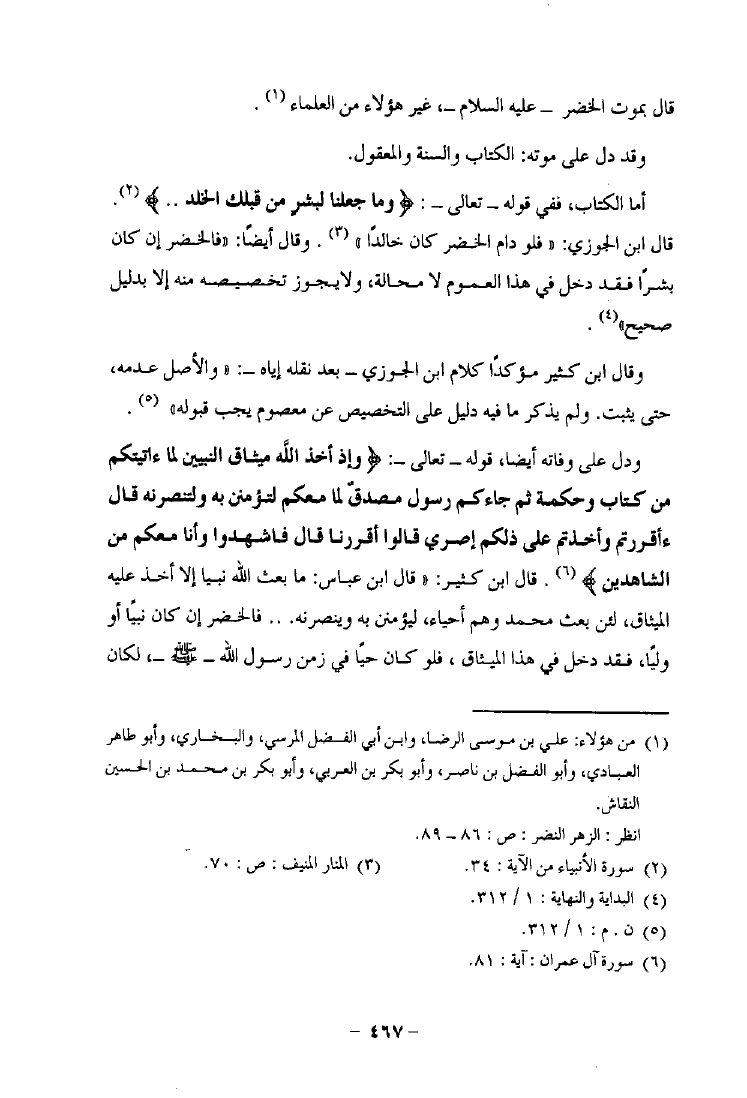 قال بموت الخضر ـ عليه السلام ـ، غير هؤلاء من العلماء (١) .
وقد دل على موته: الكتاب والسنة والمعقول.
أما الكتاب، ففي قوله ـ تعالى ـ : ﴿ وما جعلنا لبشرٍ من قبلك الخلد .. ﴾ (٢).
قال ابن الجوزي: « فلو دام الخضر كان خالدًا » (٣) . وقال أيضًا: «فالخضر إن كان
بشرًا فقد دخل في هذا العموم لا محالة، ولايجوز تخصيصه منه إلا بدليل
صحيح»(٤) .
وقال ابن كثير مؤكدًا كلام ابن الجوزي ـ بعد نقله إياه ـ: « والأصل عدمه،
حتى يثبت. ولم يذكر ما فيه دليل على التخصيص عن معصوم يجب قبوله» (٥) .
ودل على وفاته أيضا، قوله ـ تعالى ـ: ﴿ وإذ أخذ اللَّه ميثاق النبيين لما ءاتيتكم
من كتاب وحكمة ثم جاءكم رسول مصدقٌ لما معكم لتؤمنن به ولتنصرنه قال
ءأقررتم وأخذتم على ذلكم إصري قالوا أقررنا قال فاشهدوا وأنا معكم من
الشاهدين ﴾ (٦) . قال ابن كثير: « قال ابن عباس: ما بعث الله نبيا إلا أخذ عليه
الميثاق، لئن بعث محمد وهم أحياء، ليؤمنن به وينصرنه. .. فالخضر إن كان نبيًا أو
وليًا، فقد دخل في هذا الميثاق ، فلو كان حيًا في زمن رسول الله ـ ﷺ ـ، لكان
(١) من هؤلاء: علي بن موسى الرضا، وابن أبي الفضل المرسي، والبخاري، وأبو طاهر
العبادي، وأبو الفضل بن ناصر، وأبو بكر بن العربي، وأبو بكر بن محمد بن الحسين
النقاش.
انظر : الزهر النضر : ص : ٨٦ ـ ٨٩.
(٢) سورة الأنبياء من الآية : ٣٤. (٣) المنار المنيف : ص : ٧٠.
(٤) البداية والنهاية : ١ / ٣١٢.
(٥) ن . م : ١ / ٣١٢.
(٦) سورة آل عمران : آية : ٨١.
- ٤٦٧ -